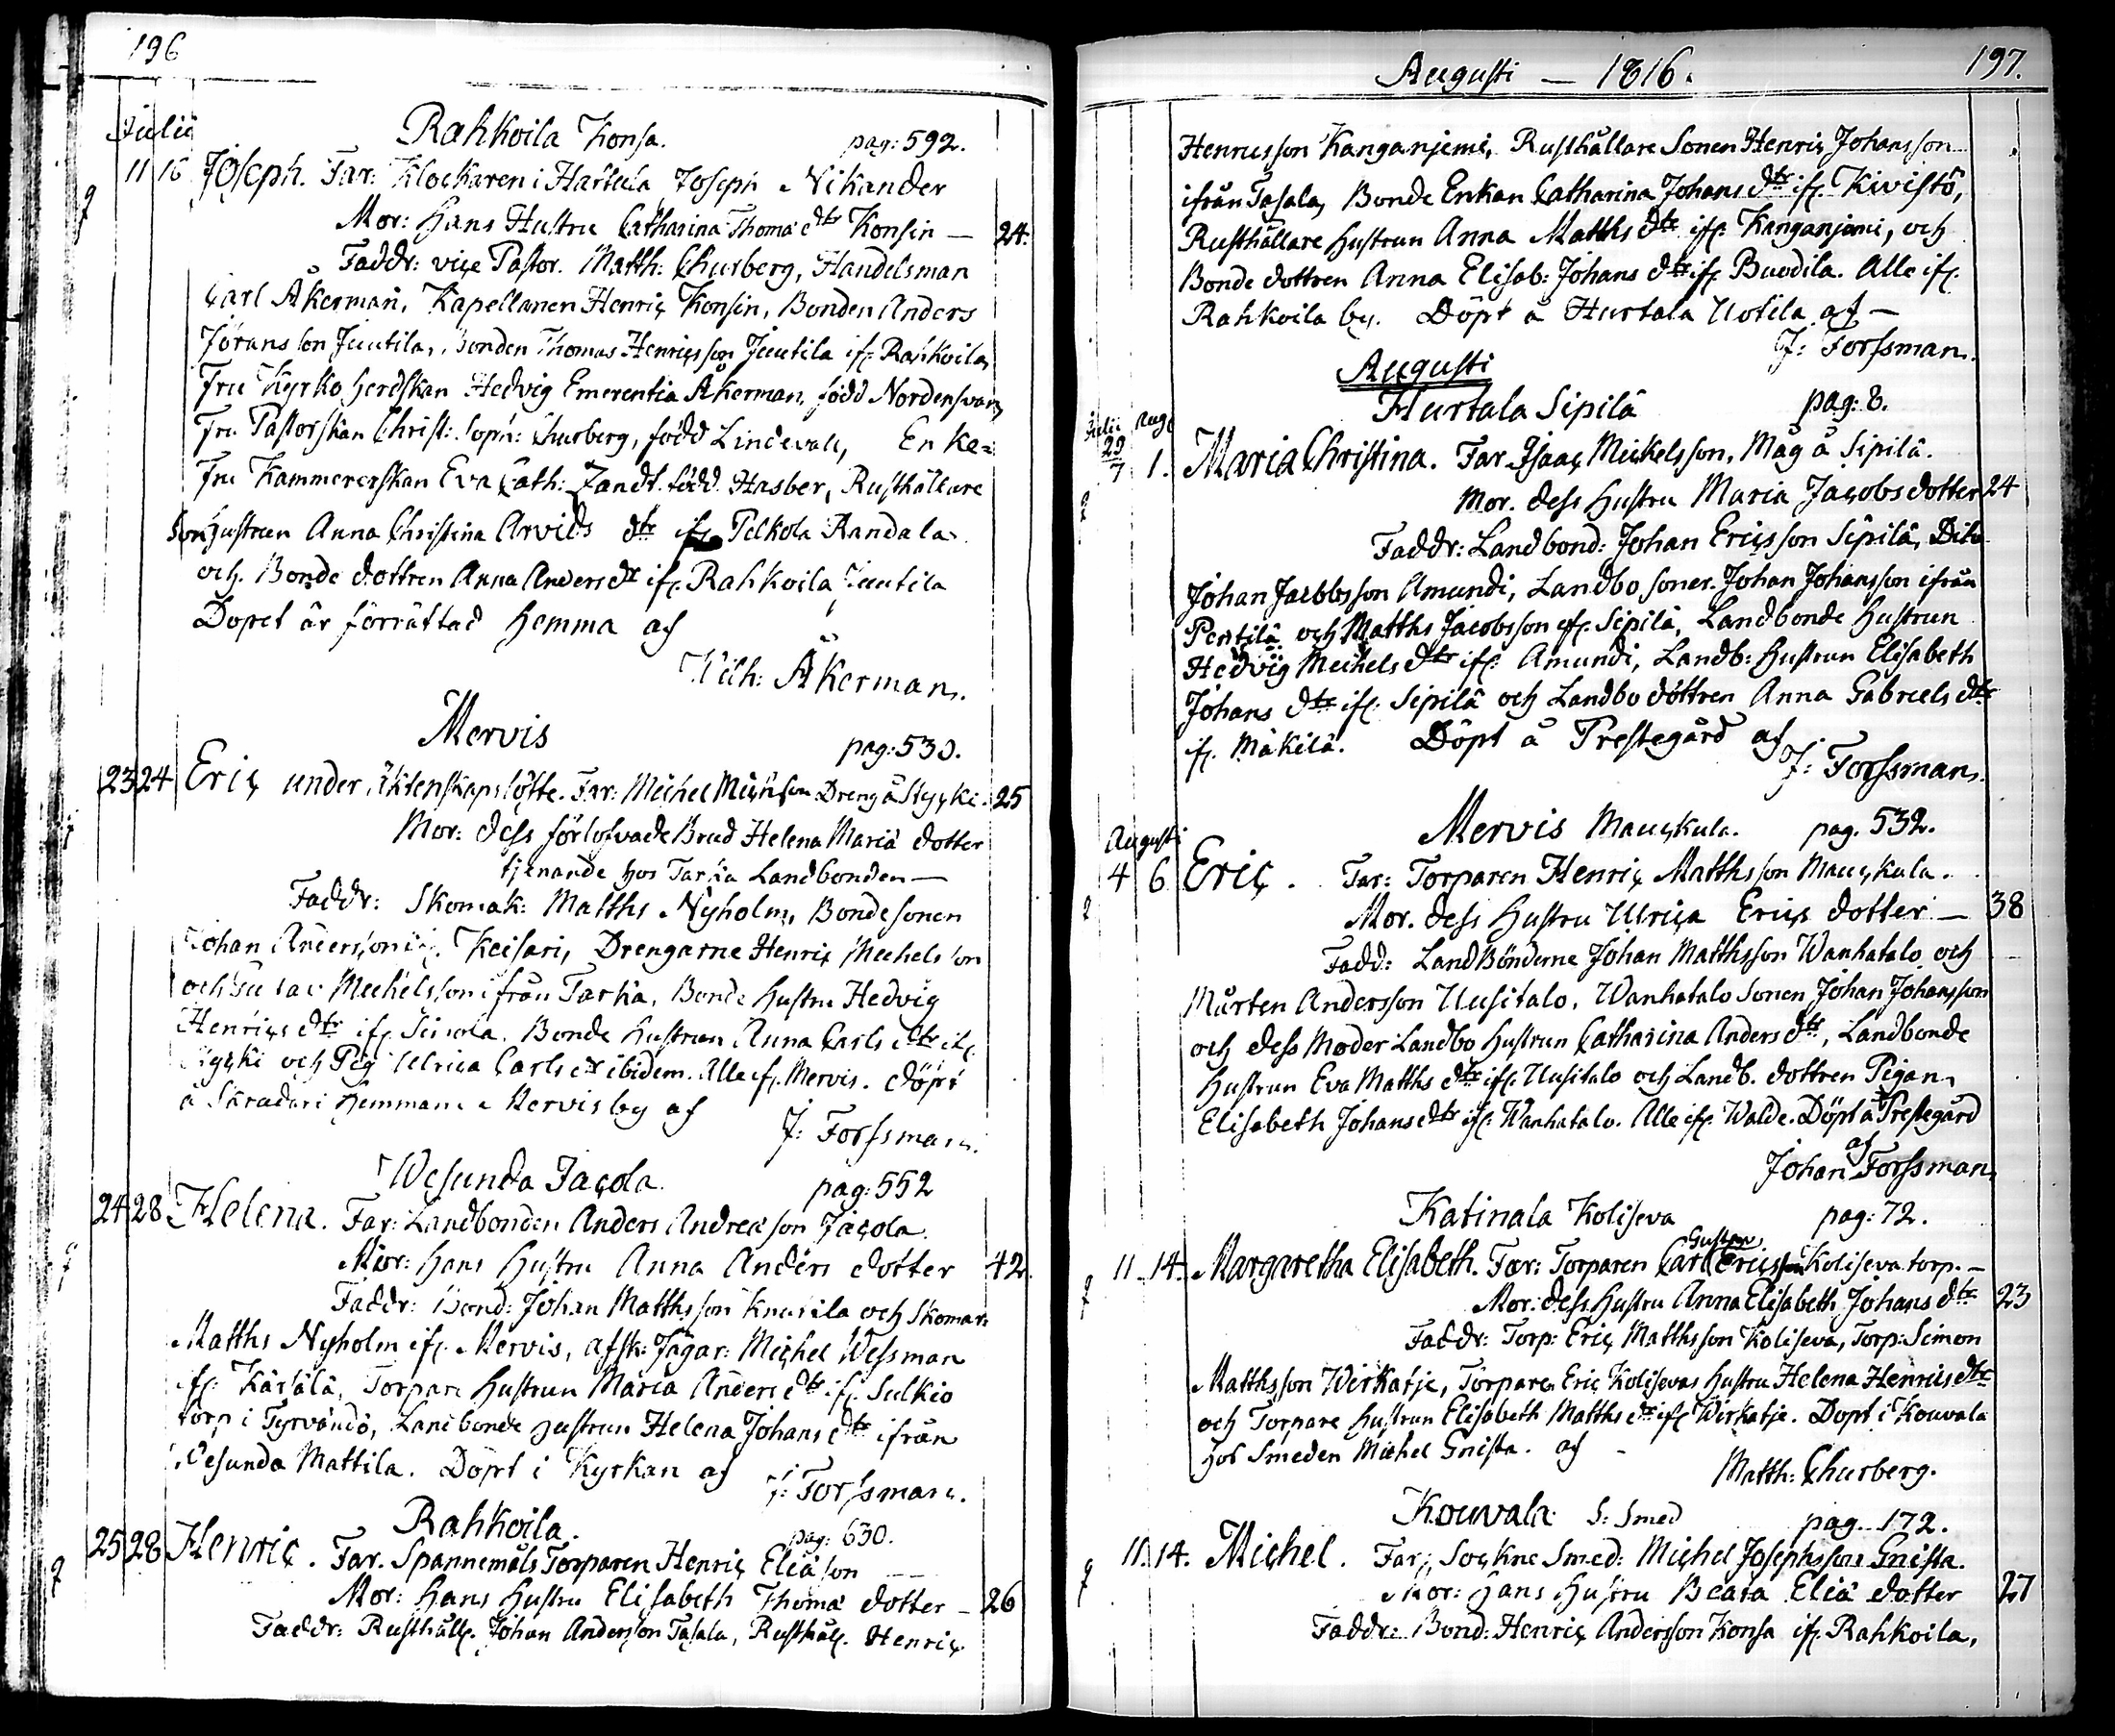 196
Julii
Rahkoila Konsa. pag: 592.
11 16 Joseph. Far: Klockaren i Hattula Joseph Nikander
Mor: Hans Hustru Catharina Thomæ dtr Konsin — 24.
Faddr: vice Pastor. Matth: Churberg, Handelsman
Carl Åkerman, Kapellanen Henric Konsin, Bonden Anders
Göransson Juutila, Bonden Thomas Henricsson Juutila ifr. Rahkoila,
Fru Kyrko herdskan Hedvig Emerentia Åkerman, född Nordensvan,
Fru Pastorskan Christ: Soph: Churberg, född Lindevall, Enke=
Fru Kammererskan Eva Cath: Zandt. född Hasber, Rusthållare
Son hustrun Anna Christina Arvids dtr ifr. Pelkola Randala
och Bonde dottren Anna Anders dtr ifr. Rahkoila Juutila
Dopet är förrättad hemma af
Wilh: Åkerman.
Mervis pag: 530.
23 24 Eric under Äktenskapslöfte. Far: Michel Michsson Dreng å Kycki. 25
Mor: dess förlofvade Brud Helena Mariæ dotter
tjenande hos Tarka Landbonden —
Faddr: Skomak: Matths Nyholm, Bonde sonen
Johan Andersson ifr. Keisari, Drengarne Henric Michelsson
och Michelsson ifrån Tarka, Bonde hustru Hedvig
Henrics dtr ifr. Simola. Bonde hustrun Anna Carls dtr ifr.
Kycki och Pig Ulrica Carls dr ibidem. Alle ifr. Mervis. döpt
å Skradari hemman i Mervis by af
J: Forssman.
Wesunda Jacola. pag: 552
24 28 Helena. Far: Landbonden Anders Andreæson Jacola.
Mor: hans Hustru Anna Anders dotter 42.
Faddr: Bond: Johan Matthsson Knuutila och Skomar.
Matths Nyholm ifr. Mervis, afsk: Jägar: Michel Wessman
ifr. Kärsälä, Torpare hustrun Maria Anders dtr ifr. Sulkio
torp i Tyrvändö, Landbonde hustrun Helena Johans dtr ifrån
Wesunda Mattila. Döpt i Kyrkan af J: Forssman.
Rahkoila. pag: 630.
25 28 Henric. Far. Spannemåls Torparen Henric Eliæson
Mor: Hans Hustru Elisabeth Thomæ dotter — 26
Faddr: Rusthåll. Johan Andersson Tasala, Rusthåll. Henric
Augusti — 1816. 197.
Henricsson Kanganjemi, Rusthållare Sonen Henric Johansson
ifrån Tasala, Bonde Enkan Catharina Johans dtr ifr. Kivistö,
Rusthållare hustrun Anna Matths dtr ifr. Kanganjemi, och
Bonde dottren Anna Elisab: Johans dtr ifr. Buodila. Alle ifr.
Rahkoila by. Döpt å Hurtala Uotila af —
J: Forssman.
Augusti
Hurtala Sipilä pag: 8.
Julii Aug
29/7 1. Maria Christina. Far. Isaac Mickelsson, Måg å Sipilä.
Mor. dess Hustru Maria Jacobs dotter 24
Faddr: Landbond: Johan Ericsson Sipilä, Dito
Johan Jacobsson Amundi, Landbo soner. Johan Johansson ifrån
Pentilä och Matths Jacobsson ifr. Sipilä, Landbonde hustrun
Hedvig Michels dtr ifr. Amundi, Landb: hustrun Elisabeth
Johans dtr ifr. Sipilä och Landbo döttren Anna Gabriels dtr
ifr. Mäkilä. Döpt å Prestegård af
J: Forssman.
Mervis Mauckula. pag. 532.
Augusti
4 6 Eric. Far: Torparen Henric Matthsson Mauckula.
Mor. dess Hustru Ulrica Erics dotter — 38
Fadd: Land Bönderne Johan Matthsson Wanhatalo och
Mårten Andersson Uusitalo, Wanhatalo Sonen Johan Johansson
och dess Moder Landbo hustrun Catharina Anders dtr, Landbonde
hustrun Eva Matths dtr ifr. Uusitalo och Landb. dottren Pigan
Elisabeth Johans dtr ifr. Wanhatalo. Alle ifr. Walde. Döpt å Prestegård
af
Johan Forssman.
Katinala Koliseva pag: 72.
Gustav
11. 14. Margaretha Elisabeth. Far: Torparen Carl Ericsson Koliseva torp. —
Mor: dess Hustru Anna Elisabeth Johans dtr 23
Faddr: Torp: Eric Matthsson Koliseva, Torp: Simon
Matthsson Wirkatje, Torparen Eric Kolisevas hustru Helena Henrics dtr
och Torpare hustrun Elisabeth Matths dtr ifr. Wirkatje. Döpt i Kouvala
hos Smeden Michel Gnista. af —
Matth: Churberg.
Kouvala S: Smed pag. 172.
11. 14. Michel. Far: Sockne Smed: Michel Josephsson Gnista.
Mor: Hans Hustru Beata Eliæ dotter 27
Faddr: Bond: Henric Andersson Konsa ifr. Rahkoila,